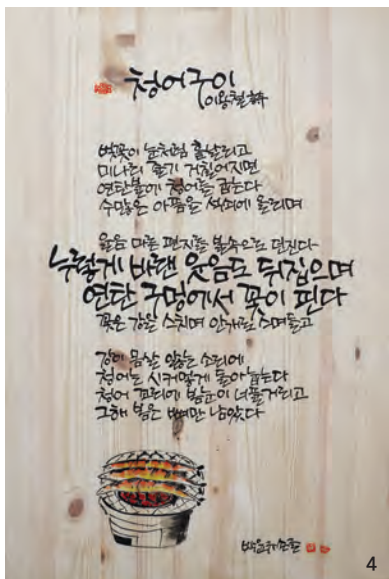 청어구이
이왕철 詩
벚꽃이 눈처럼 흩날리고
미나리 줄기 거칠어지면
연탄불에 청어를 굽는다
수많은 아픔을 석쇠에 올리며
울음 마른 편지를 불속으로 던진다
누렇게 바랜 웃음도 뒤집으며
연탄 구멍에서 꽃이 핀다
꽃은 강을 스치며 안개로 스며들고
강이 몸살 앓는 소리에
청어는 시커멓게 돌아눕는다
청어 꼬리에 봄눈이 너풀거리고
그해 봄은 뼈만 남았다
4